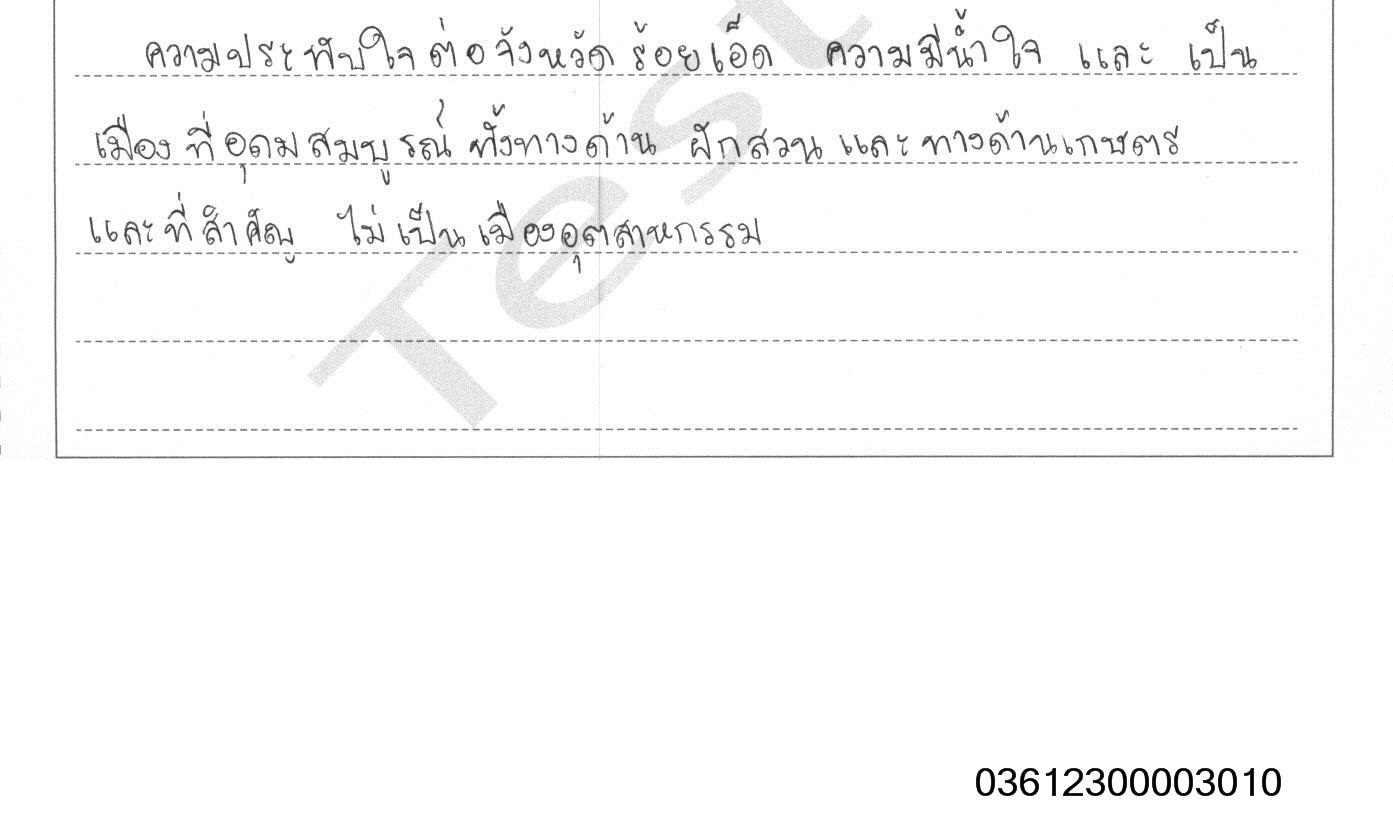 ความประทับใจต่อจังหวัดร้อยเอ็ด ความมีน้ำใจ และ เป็น
เมืองที่อุดมสมบูรณ์ทั้งทางด้าน ผักสวน และทางด้านเกษตร
และที่สำคัญ ไม่เป็นเมืองอุตสาหกรรม
Test
03612300003010